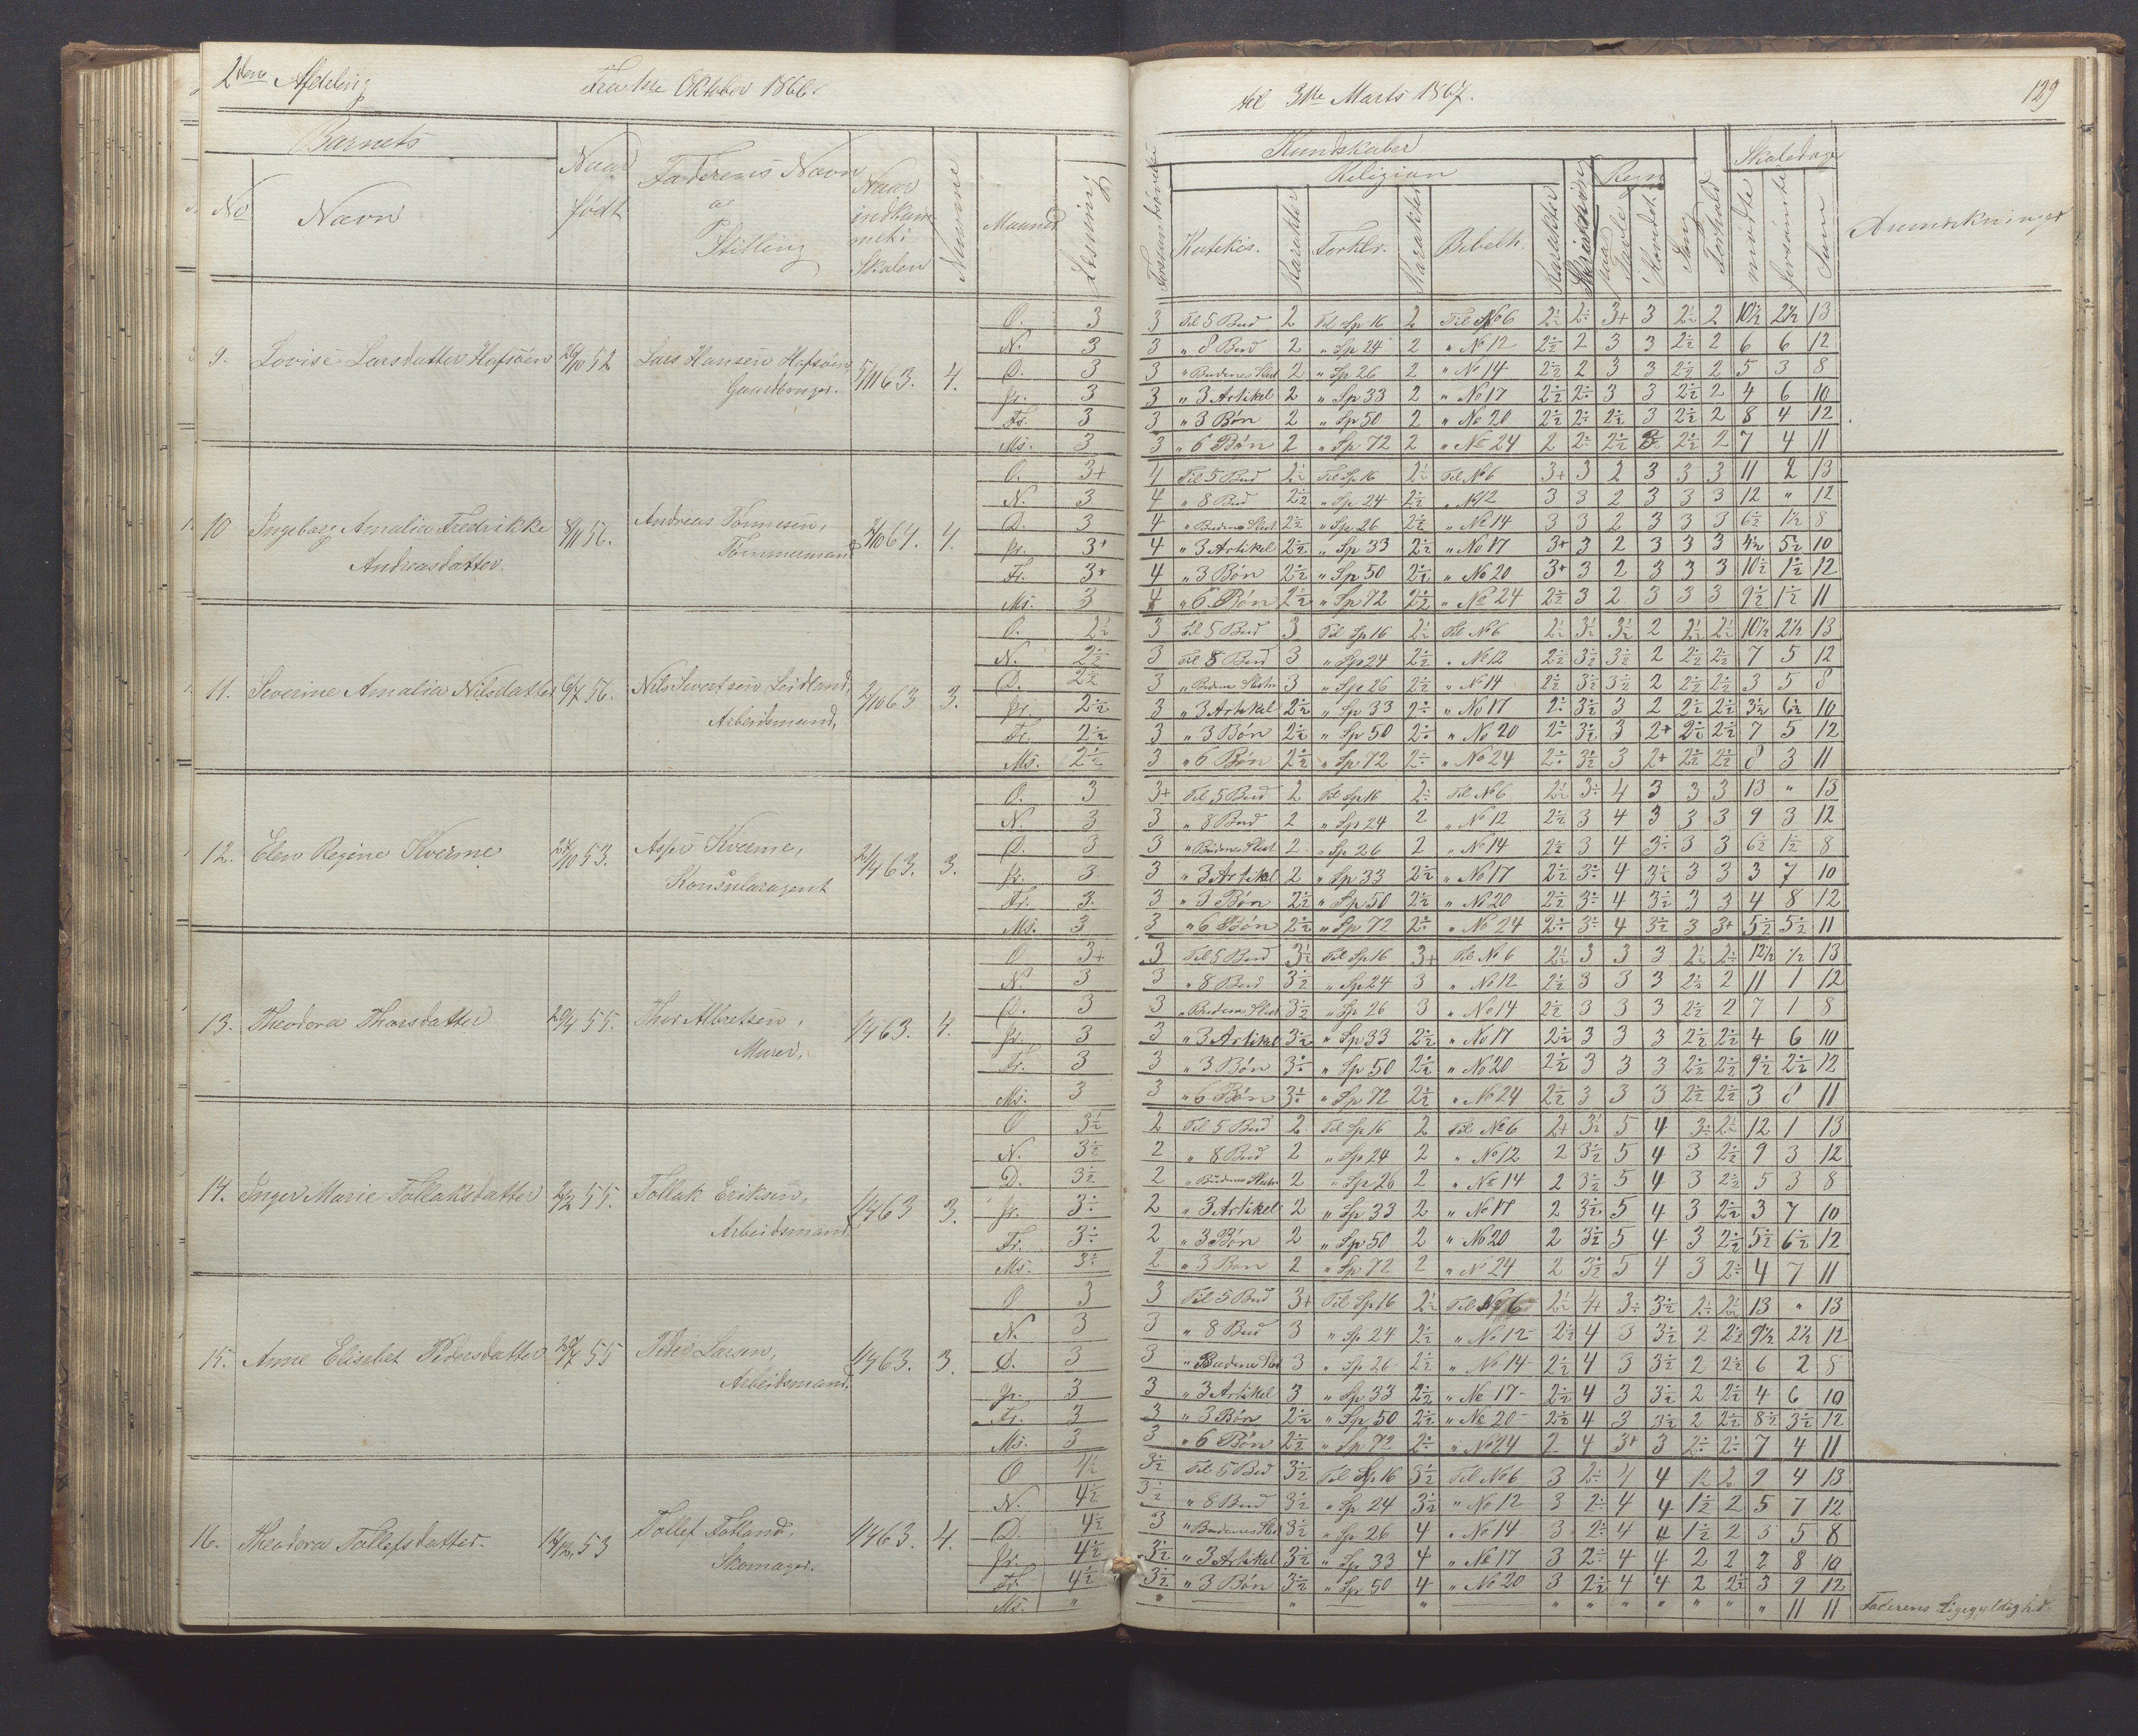 2den Afdeling Fra 1ste Oktober 1866.
til 31te Marts 1867. 129
Barnets
No Navn
Naar født
Faderens Navn og Stilling
Naar indkommet i Skolen
Numme
Maaned
Læsning
Kundskaber
Religion
Katekis. Karakter Forklr. Karakter Bibelh. Karakter
Skrivning
Regn
paa Tavle i Hovedet
Sang
Forhold
Skoledage
mødte forsømte Sum
Anmærkninger
9. Lovise Larsdatter Hafsøen 52 Lars Hansen Hafsøen, Gaardbruger. 5/11 63. 4.
O. 3 3 Til 5 Bud 2 Til Sp 16 2 Til No 6 2½ 2÷ 3+ 3 2½ 2 10½ 2½ 13
N. 3 3 " 8 Bud 2 " Sp 24 2 " No 12 2½ 2 3 3 2½ 2 6 6 12
D. 3 3 " Budenes Slut 2 " Sp 26 2 " No 14 2½ 2 3 3 2½ 2 5 3 8
Jr. 3 3 " 3 Artikel 2 " Sp 33 2 " No 17 2½ 2÷ 3 3 2½ 2 4 6 10
Fr. 3 3 " 3 Bøn 2 " Sp 50 2 " No 20 2½ 2÷ 2½ 3 2½ 2 8 4 12
Ms. 3 3 " 6 Bøn 2 " Sp 72 2 " No 24 2 2÷ 2½ 2½ 2 7 4 11
10 Ingeborg Amalia Fredrikke Andreasdatter. 8/11 56. Andreas Tønnesen, Tømmermand 64. 4.
O. 3+ 4 Til 5 Bud 2½ Til Sp 16 2½ Til No 6 3+ 3 2 3 3 3 11 2 13
N. 3 4 " 8 Bud 2½ " Sp 24 2½ " No 12 3 3 2 3 3 3 12 " 12
D. 3 4 " Budenes Slut 2½ " Sp 26 2½ " No 14 3 3 2 3 3 3 6½ 1½ 8
Jr. 3+ 4 " 3 Artikel 2½ " Sp 33 2½ " No 17 3+ 3 2 3 3 3 4½ 5½ 10
Fr. 3+ 4 " 3 Bøn 2½ " Sp 50 2½ " No 20 3+ 3 2 3 3 3 10½ 1½ 12
Ms. 3 4 " 6 Bøn 2½ " Sp 72 2½ " No 24 2½ 3 2 3 3 3 9½ 1½ 11
11. Severine Amalia Nilsdatter 6/7 56. Nils Sivertsen Leidland, Arbeidsmand, 2/10 63 3.
O. 2½ 3 Til 5 Bud 3 Til Sp 16 2½ Til No 6 2½ 3½ 3½ 2 2½ 2½ 10½ 2½ 13
N. 2½ 3 Til 8 Bud 3 " Sp 24 2½ " No 12 2½ 3½ 3½ 2 2½ 2½ 7 5 12
D. 2½ 3 " Budenes Slutn 3 " Sp 26 2½ " No 14 2½ 3½ 3½ 2 2½ 2½ 3 5 8
Jr. 2½ 3 " 3 Artikel 2½ " Sp 33 2÷ " No 17 2÷ 3½ 3 2 2½ 2½ 3½ 6½ 10
Fr. 2½ 3 " 3 Bøn 2½ " Sp 50 2÷ " No 20 2÷ 3½ 3 2+ 2½ 2½ 7 5 12
Ms. 2½ 3 " 6 Bøn 2½ " Sp 72 2÷ " No 24 2÷ 3½ 3 2+ 2½ 2½ 8 3 11
12. Elen Regine Kverme 53. Kverme, Konsularagent 63. 3.
O. 3 3+ Til 5 Bud 2 Til Sp 16 2÷ Til No 6 2½ 3÷ 4 3 3 3 13 " 13
N. 3 3 " 8 Bud 2 " Sp 24 2 " No 12 2½ 3 4 3 3 3 9 3 12
D. 3 3 " Budenes Slut 2 " Sp 26 2 " No 14 2½ 3 4 3÷ 3 3 6½ 1½ 8
Jr. 3 3 " 3 Artikel 2 " Sp 33 2½ " No 17 2½ 3÷ 4 3½ 3 3 3 7 10
Fr. 3 3 " 3 Bøn 2½ " Sp 50 2½ " No 20 2½ 3÷ 4 3½ 3 3 4 8 12
Ms. 3 3 " 6 Bøn 2½ " Sp 72 2÷ " No 24 2÷ 3÷ 4 3½ 3 3+ 5½ 5½ 11
13. Theodora Thorsdatter 55. Thor Albretsen, Murer. 63. 4.
O 3+ 3 Til 5 Bud 3½ Til Sp 16 3+ Til No 6 2½ 3 3 3 2½ 2÷ 12½ ½ 13
N. 3 3 " 8 Bud 3½ " Sp 24 3 " No 12 2½ 3 3 3 2½ 2 11 1 12
D. 3 3 " Budenes Slut 3½ " Sp 26 3 " No 14 2½ 3 3 3 2½ 2 7 1 8
Jr. 3 3 " 3 Artikel 3½ " Sp 33 2½ " No 17 2½ 3 3 3 2½ 2½ 4 6 10
Fr. 3 3 " 3 Bøn 3÷ " Sp 50 2½ " No 20 2½ 3 3 3 2½ 2½ 9½ 2½ 12
Ms. 3 3 " 6 Bøn 3÷ " Sp 72 2½ " No 24 2½ 3 3 3 2½ 2½ 3 8 11
14. Inger Marie Tollaksdatter 2/2 55. Tollak Eriksen, Arbeidsmand 63 3.
O 3½ 2 Til 5 Bud 2 Til Sp 16 2 Til No 6 2+ 3½ 5 4 3÷ 2½ 12 1 13
N. 3½ 2 " 8 Bud 2 " Sp 24 2 " No 12 2 3½ 5 4 3 2½ 9 3 12
D. 3½ 2 " Budenes Slutn 2 " Sp 26 2 " No 14 2 3½ 5 4 3 2½ 5 3 8
Jr. 3÷ 2 " 3 Artikel 2 " Sp 33 2 " No 17 2 3½ 5 4 3 2½ 3 7 10
Fr. 3÷ 2 " 3 Bøn 2 " Sp 50 2 " No 20 2 3½ 5 4 3 2½ 5½ 6½ 12
Ms. 3÷ 2 " 3 Bøn 2 " Sp 72 2 " No 24 2 3½ 5 4 3 2÷ 4 7 11
15. Anne Elisebet Pedersdatter 55 Peder Larsen, Arbeidsmand, 63. 3.
O 3 3 Til 5 Bud 3+ Til Sp 16 2½ Til No 6 2½ 4 3÷ 3½ 2÷ 2½ 13 " 13
N. 3 3 " 8 Bud 3 " Sp 24 2½ " No 12 2½ 4 3 3½ 2 2½ 9½ 2½ 12
D. 3 3 " Budenes Slut 3 " Sp 26 2½ " No 14 2½ 4 3 3½ 2 2½ 6 2 8
Jr. 3 3 " 3 Artikel 3 " Sp 33 2½ " No 17 2½ 4 3 3½ 2 2½ 4 6 10
Fr. 3 3 " 3 Bøn 2½ " Sp 50 2½ " No 20 2½ 4 3 3½ 2 2½ 8½ 3½ 12
Ms. 3 3 " 6 Bøn 2½ " Sp 72 2÷ " No 24 2 4 3+ 3 2÷ 2÷ 7 4 11
16. Theodora Tollefsdatter 53 Tollef Fotland, Skomager. 63. 4.
O 4½ 3½ Til 5 Bud 3½ Til Sp 16 3½ Til No 6 3 2÷ 4 4 1½ 2 9 4 13
N. 4½ 3½ " 8 Bud 3½ " Sp 24 3½ " No 12 3 2÷ 4 4 1½ 2 5 7 12
D. 4½ 3 " Budenes Slut 3½ " Sp 26 4 " No 14 3 2÷ 4 4 1½ 2 3 5 8
Jr. 4½ 3½ " 3 Artikel 3½ " Sp 33 4 " No 17 3 2÷ 4 4 2 2 2 8 10
Fr. 4½ 3½ " 3 Bøn 3½ " Sp 50 4 " No 20 3 2½ 4 4 2 2½ 3 9 12
Ms. " " " " " " " " " " " 11 11 Faderens Ligegyldighed.